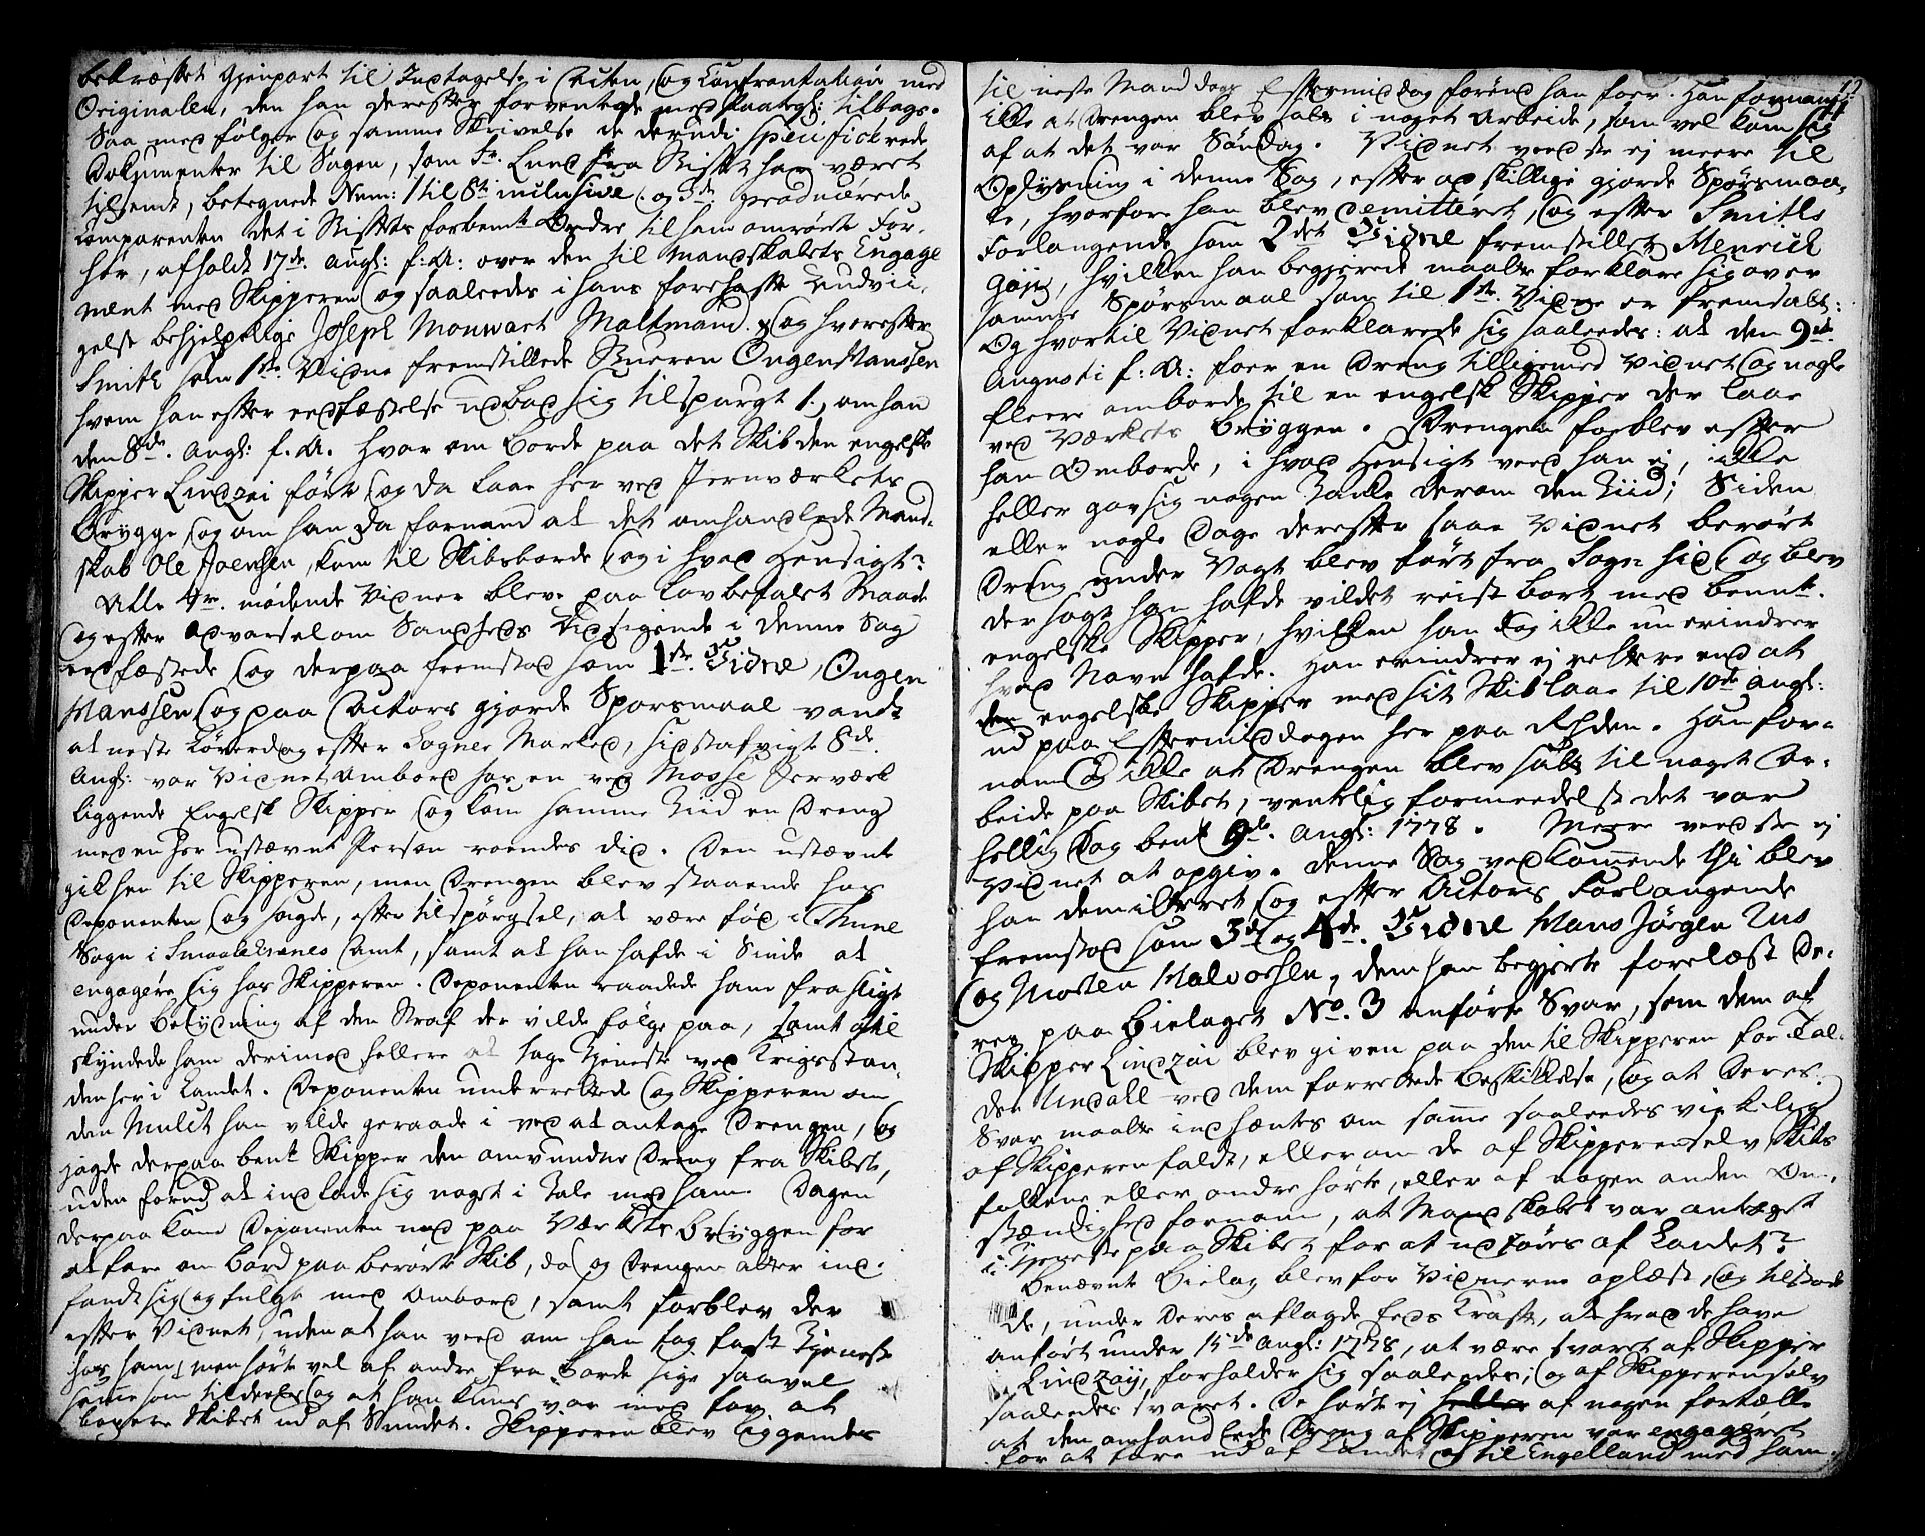 bekræftet Gjenpart til Indtagelse i Acten, og Confrontation med
Originalen, den han derefter forventede med Paategn: tilbage.
Saa med følger og samme Skrivelse de derudi specificerede
Dokumenter til Sagen, som Sr. Lund fra Stiftet har været
tilsendt, betegnede Num: 1 til 8te inclusive og 3de producerede
Comparenten det i Stiftets forbemte Ordre til ham omrørte For-
hør, afholdt 17de Augs: f: A: over den til Mandskabets Engage
ment med Skipperen og saaledes i hans forehafte Undvi-
gelse behjelpelige Joseph Monwart Maltmand og hvorefter
Smith som 1ste Vidne fremstillede Bueren Ongen Hanssen
hvem han efter eedfæstelse udbad sig tilspurgt 1. om han
den 8de Augs: f. A. var om Borde paa det Skib den engelske
Skipper Lindzai førte og da laae her ved Jernværkets
Brygge, og om han da fornam at det omhandlede Mand-
skab Ole Joensen, kom til Skibsborde og i hvad Hensigt?
Alle 4re mødende Vidner bleve paa Lovbefalet Maade
og efter advarsel om Sandheds Udsigende i denne Sag
eedfæstede og derpaa fremstod som 1ste Vidne, Ongen
Hanssen og paa Actors gjorde Spørsmaal vandt
at neste Løverdag efter Sogner Marked, sidstafvigte 8de
Augs: var Vidnet ombord hos en ved Mosse Jernværk
liggende Engelsk Skipper og kom samme Tiid en Dreng
med en her ustævnt Person roendes did. Den ustævnte
gik hen til Skipperen, men Drengen blev staaende hos
Deponenten og sagde, efter tilspørgsel, at være fød i Thune
Sogn i Smaalehnenes Amt, samt at han hafde i Sinde at
engagere sig hos Skipperen. Deponenten raadede ham fra sligt
under betydning af den Straf der vilde følge paa, samt til
skyndede ham derimod hellere at tage Tjeneste ved Krigsstan-
den her i Landet. Deponenten underrettede og Skipperen om
den Mulct han vilde geraade i ved at antage Drengen, og
jagde derpaa bemt Skipper den omvundne Dreng fra Skibet,
uden forud at indlade sig noget i Tale med ham. Dagen
derpaa kom Deponenten ned paa Værkets Bryggen for
at fare om bord paa berørte Skib, da og Drengen atter ind-
fandt sig og fulgte med Ombord, samt forblev der
efter Vidnet, uden at han veed om han tog fast Tjeneste
hos ham, men hørte vel af andre fra Borde sige saavel
samme som tildeels og at han kuns var med for at
bogsere Skibet ud af Sundet. Skipperen blev liggendes
til neste Manddags Eftermiddag førend han foer. Han fornam
ikke at Drengen blev satt i noget Arbeide, som vel kom sig
af at det var Søndag. Vidnet veedste ej meere til
Oplysning i denne Sag, efter adskillige gjorde Spørsmaa-
le, hvorfore han blev demitteret, og efter Smiths
Forlangende som 2det Vidne fremstillet Henrich
Gøje, hvilken han begjerede maatte forklare sig over
samme Spørsmaal som til 1ste Vidne er fremsatt:
Og hvortil Vidnet forklarede sig saaledes: at den 9de
Augusti f: A: foer en Dreng tilligemed Vidnet og nogle
fleere omborde til en engelsk Skipper der laae
ved Værkets Bryggen. Drengen forblev efter
han Omborde, i hvad Hensigt veed han ej, ikke
heller gav sig nogen Tanke derom den Tiid; Siden
eller nogle Dage derefter saae Vidnet berørt
Dreng under Vagt blev ført fra Sogn hid og blev
der sagt han hafde vildet reist bort med bemt.
engelske Skipper, hvilken han dog ikke nu erindrer
hvad Navn hafde. Han erindrer ej rettere end at
den engelske Skipper med sit Skib laae til 10de Augs:
ud paa Eftermiddagen her paa Rheden. Han for-
nam og ikke at Drengen blev satt til noget Ar-
beide paa Skibet, ventelig formedelst det var
hellig Dag bemt 9de Augs: 1778. Meere veedste ej
Vidnet at opgive denne Sag vedkommende thi blev
han demitteret og efter Actors Forlangende
fremstod som 3de og 4de Vidne Hans Jørgen Uus
og Morten Halvorsen, dem han begjerte forelæst De-
res paa Bielaget No. 3 anførte Svar, som dem af
Skipper Lindzai blev given paa den til Skipperen for Kal-
der Undall ved dem forrettede Beskikkelse, og at Deres
Svar maatte indhentes om samme saaledes virkelig
af Skipperen faldt, eller om de af Skipperen selv Skibs
folkene eller andre hørte, eller af nogen anden Om-
stændighed fornam, at Mandskabet var antaget
i Tjeneste paa Skibet for at udføres af Landet?
Benævnt Bielag blev for Vidnerne oplæst, og tilstode
de, under Deres aflagde Eeds Kraft, at hvad de have
anført under 15de Augs: 1778, at være svaret af Skipper
Lindzay, forholder sig saaledes, og af Skipperen selv
saaledes svaret. De hørte ej heller af nogen fortælle
at den omhandlede Dreng af Skipperen var engageret
for at fare ud af Landet og til Engelland med ham